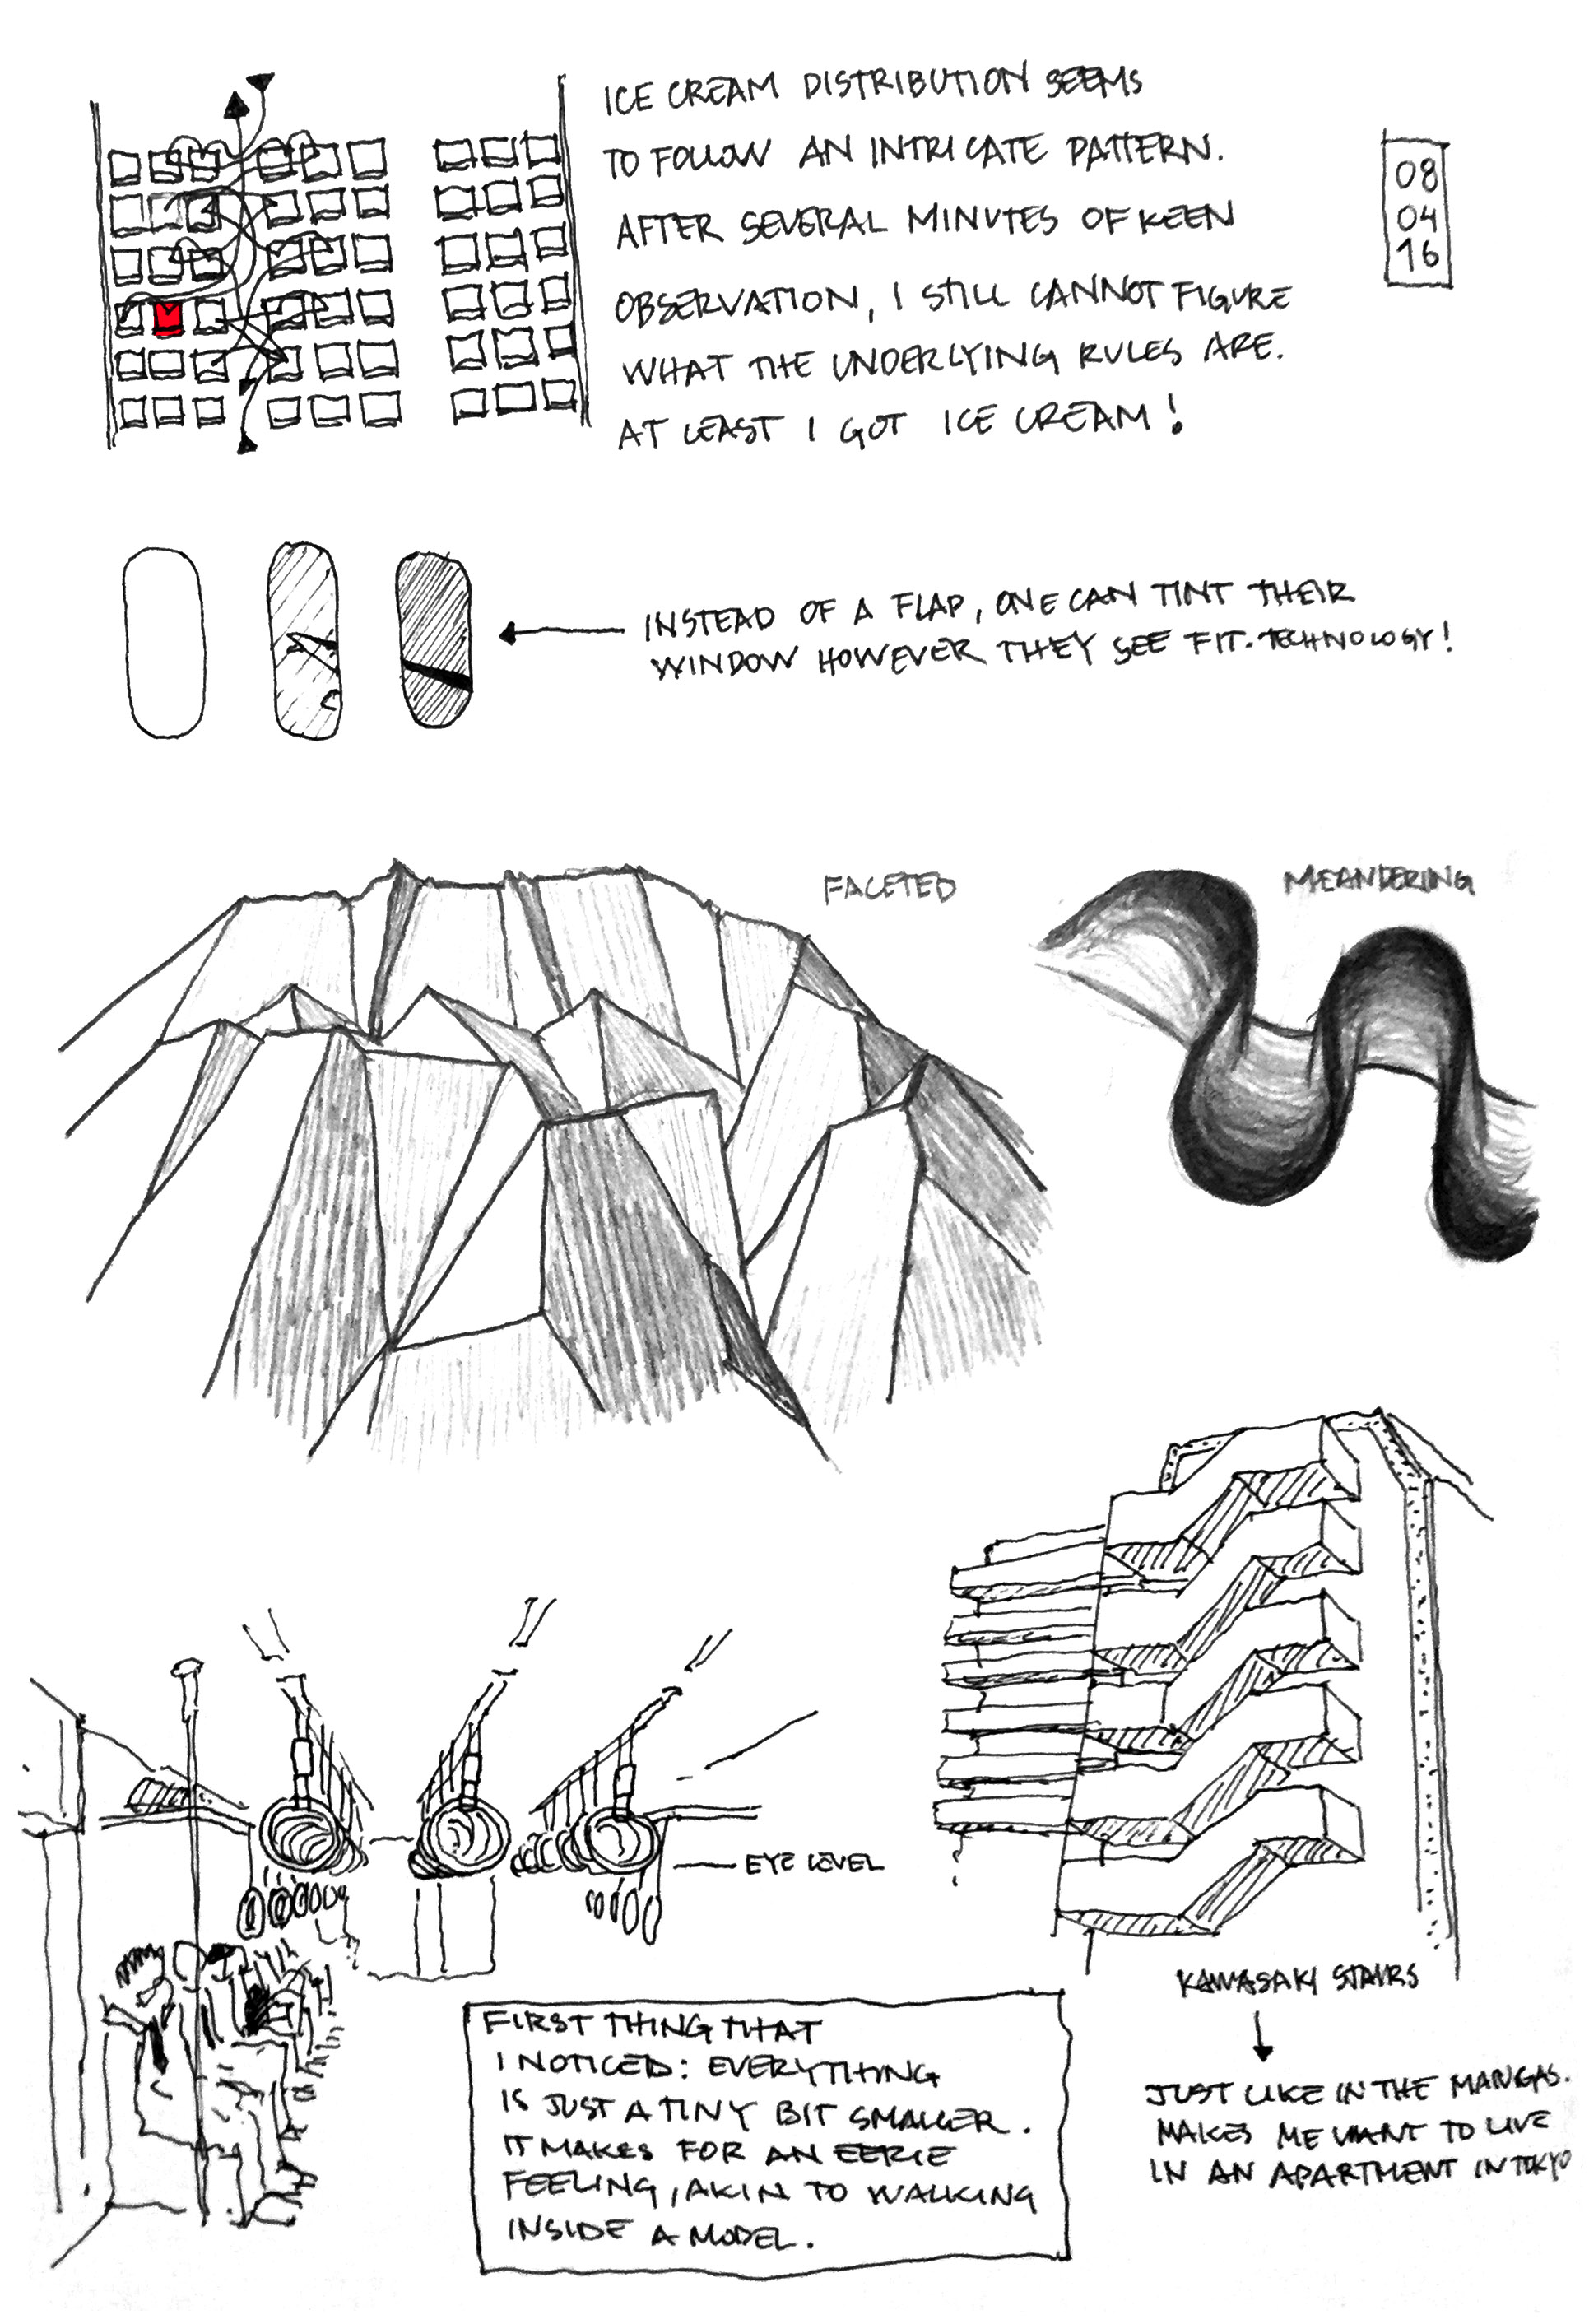 ICE CREAM DISTRIBUTION SEEMS
TO FOLLOW AN INTRICATE PATTERN.
AFTER SEVERAL MINUTES OF KEEN
OBSERVATION, I STILL CANNOT FIGURE
WHAT THE UNDERLYING RULES ARE.
AT LEAST I GOT ICE CREAM!
08
04
16
INSTEAD OF A FLAP, ONE CAN TINT THEIR
WINDOW HOWEVER THEY SEE FIT. TECHNOLOGY!
FACETED
MEANDERING
EYE LEVEL
FIRST THING THAT
I NOTICED: EVERYTHING
IS JUST A TINY BIT SMALLER.
IT MAKES FOR AN EERIE
FEELING, AKIN TO WALKING
INSIDE A MODEL.
KAWASAKI STAIRS
JUST LIKE IN THE MANGAS.
MAKES ME WANT TO LIVE
IN AN APARTMENT IN TOKYO